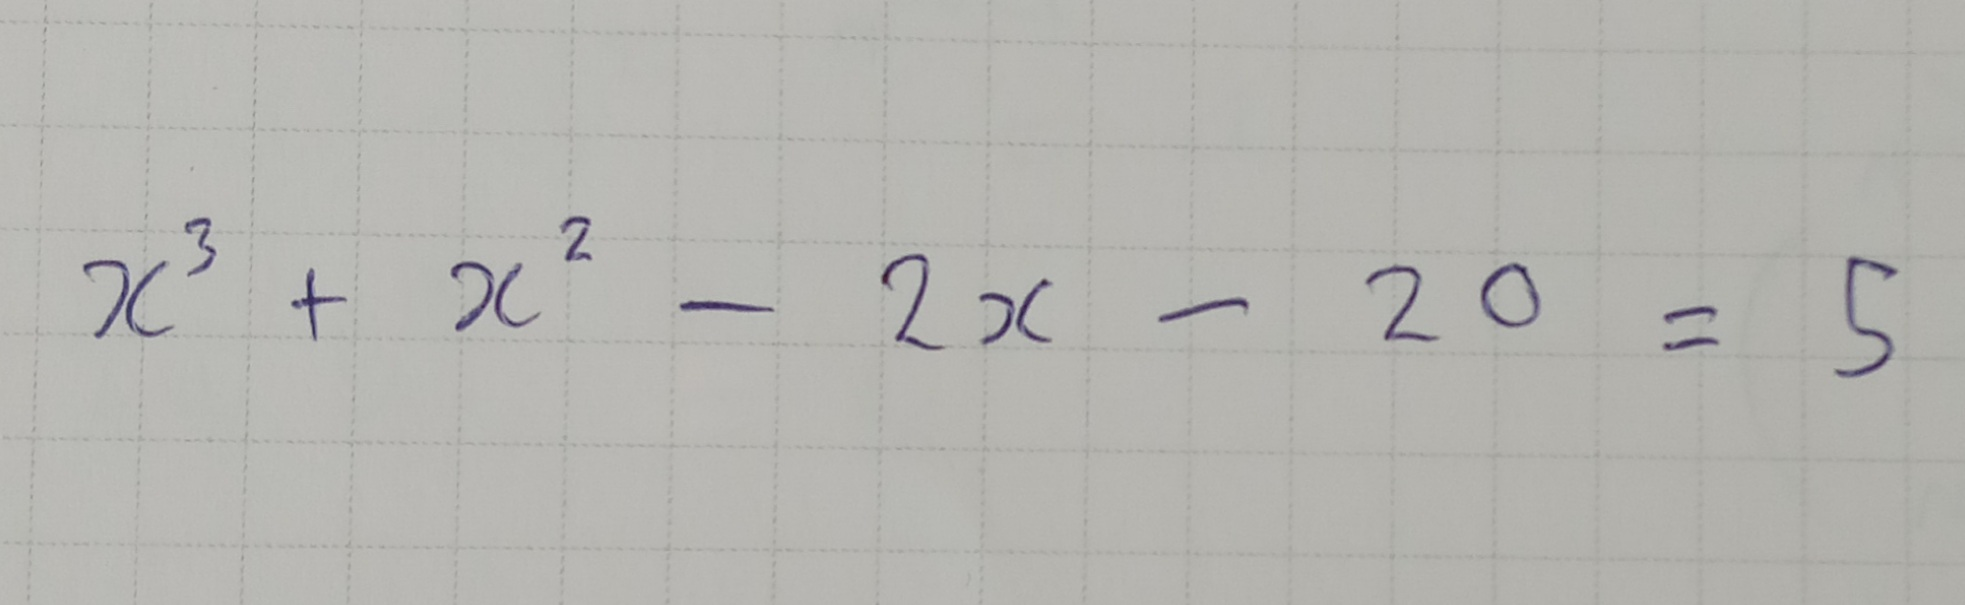 x³ + x² - 2x - 20 = 5